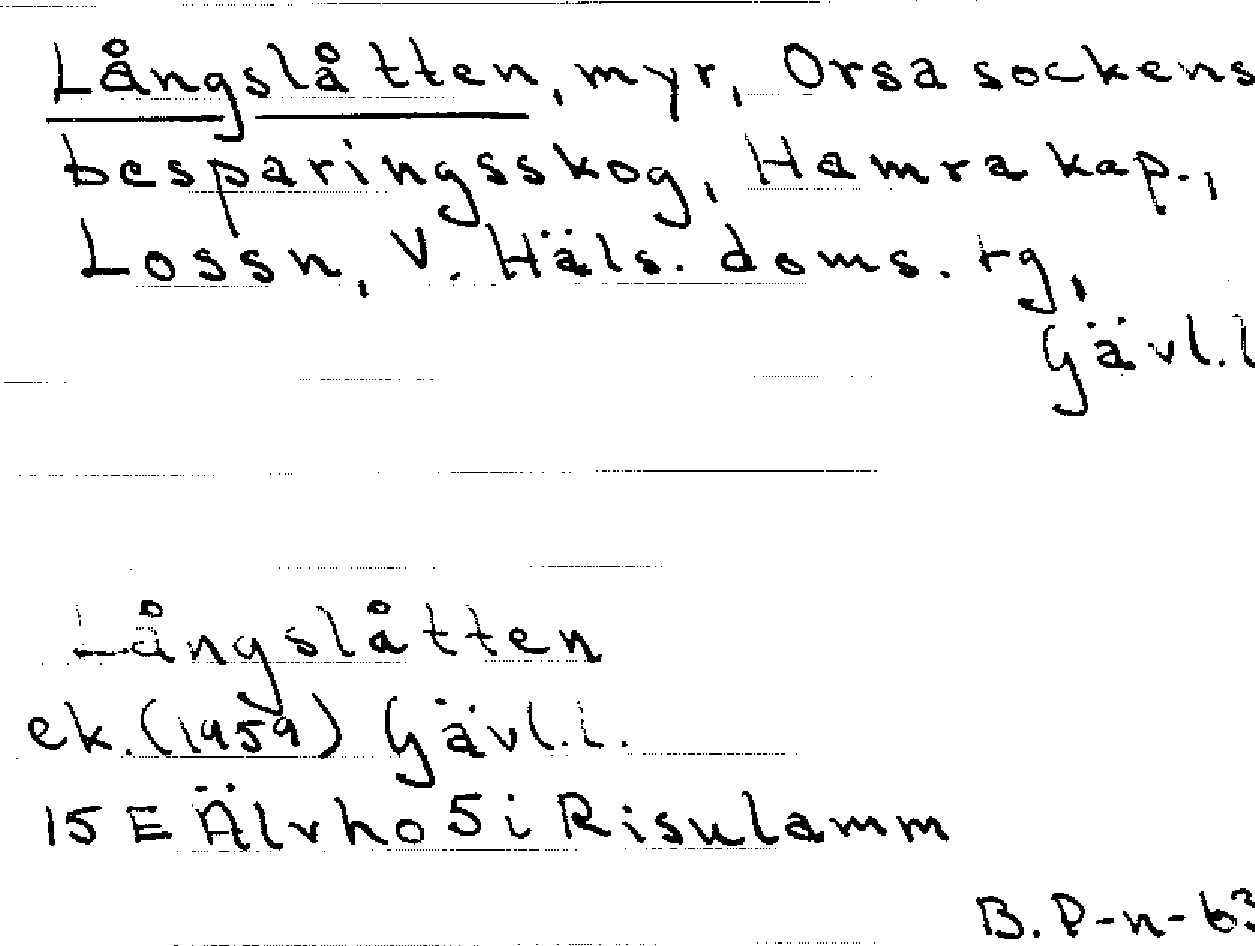 Långslåtten, myr, Orsa sockens
besparingsskog, Hamra kap.,
Lossn, V. Häls. doms. tg,
Gävl.l
Långslåtten
ek. (1959) Gävl.l.
15 E Älvho 5 i Risulamm
B. P-n- 63